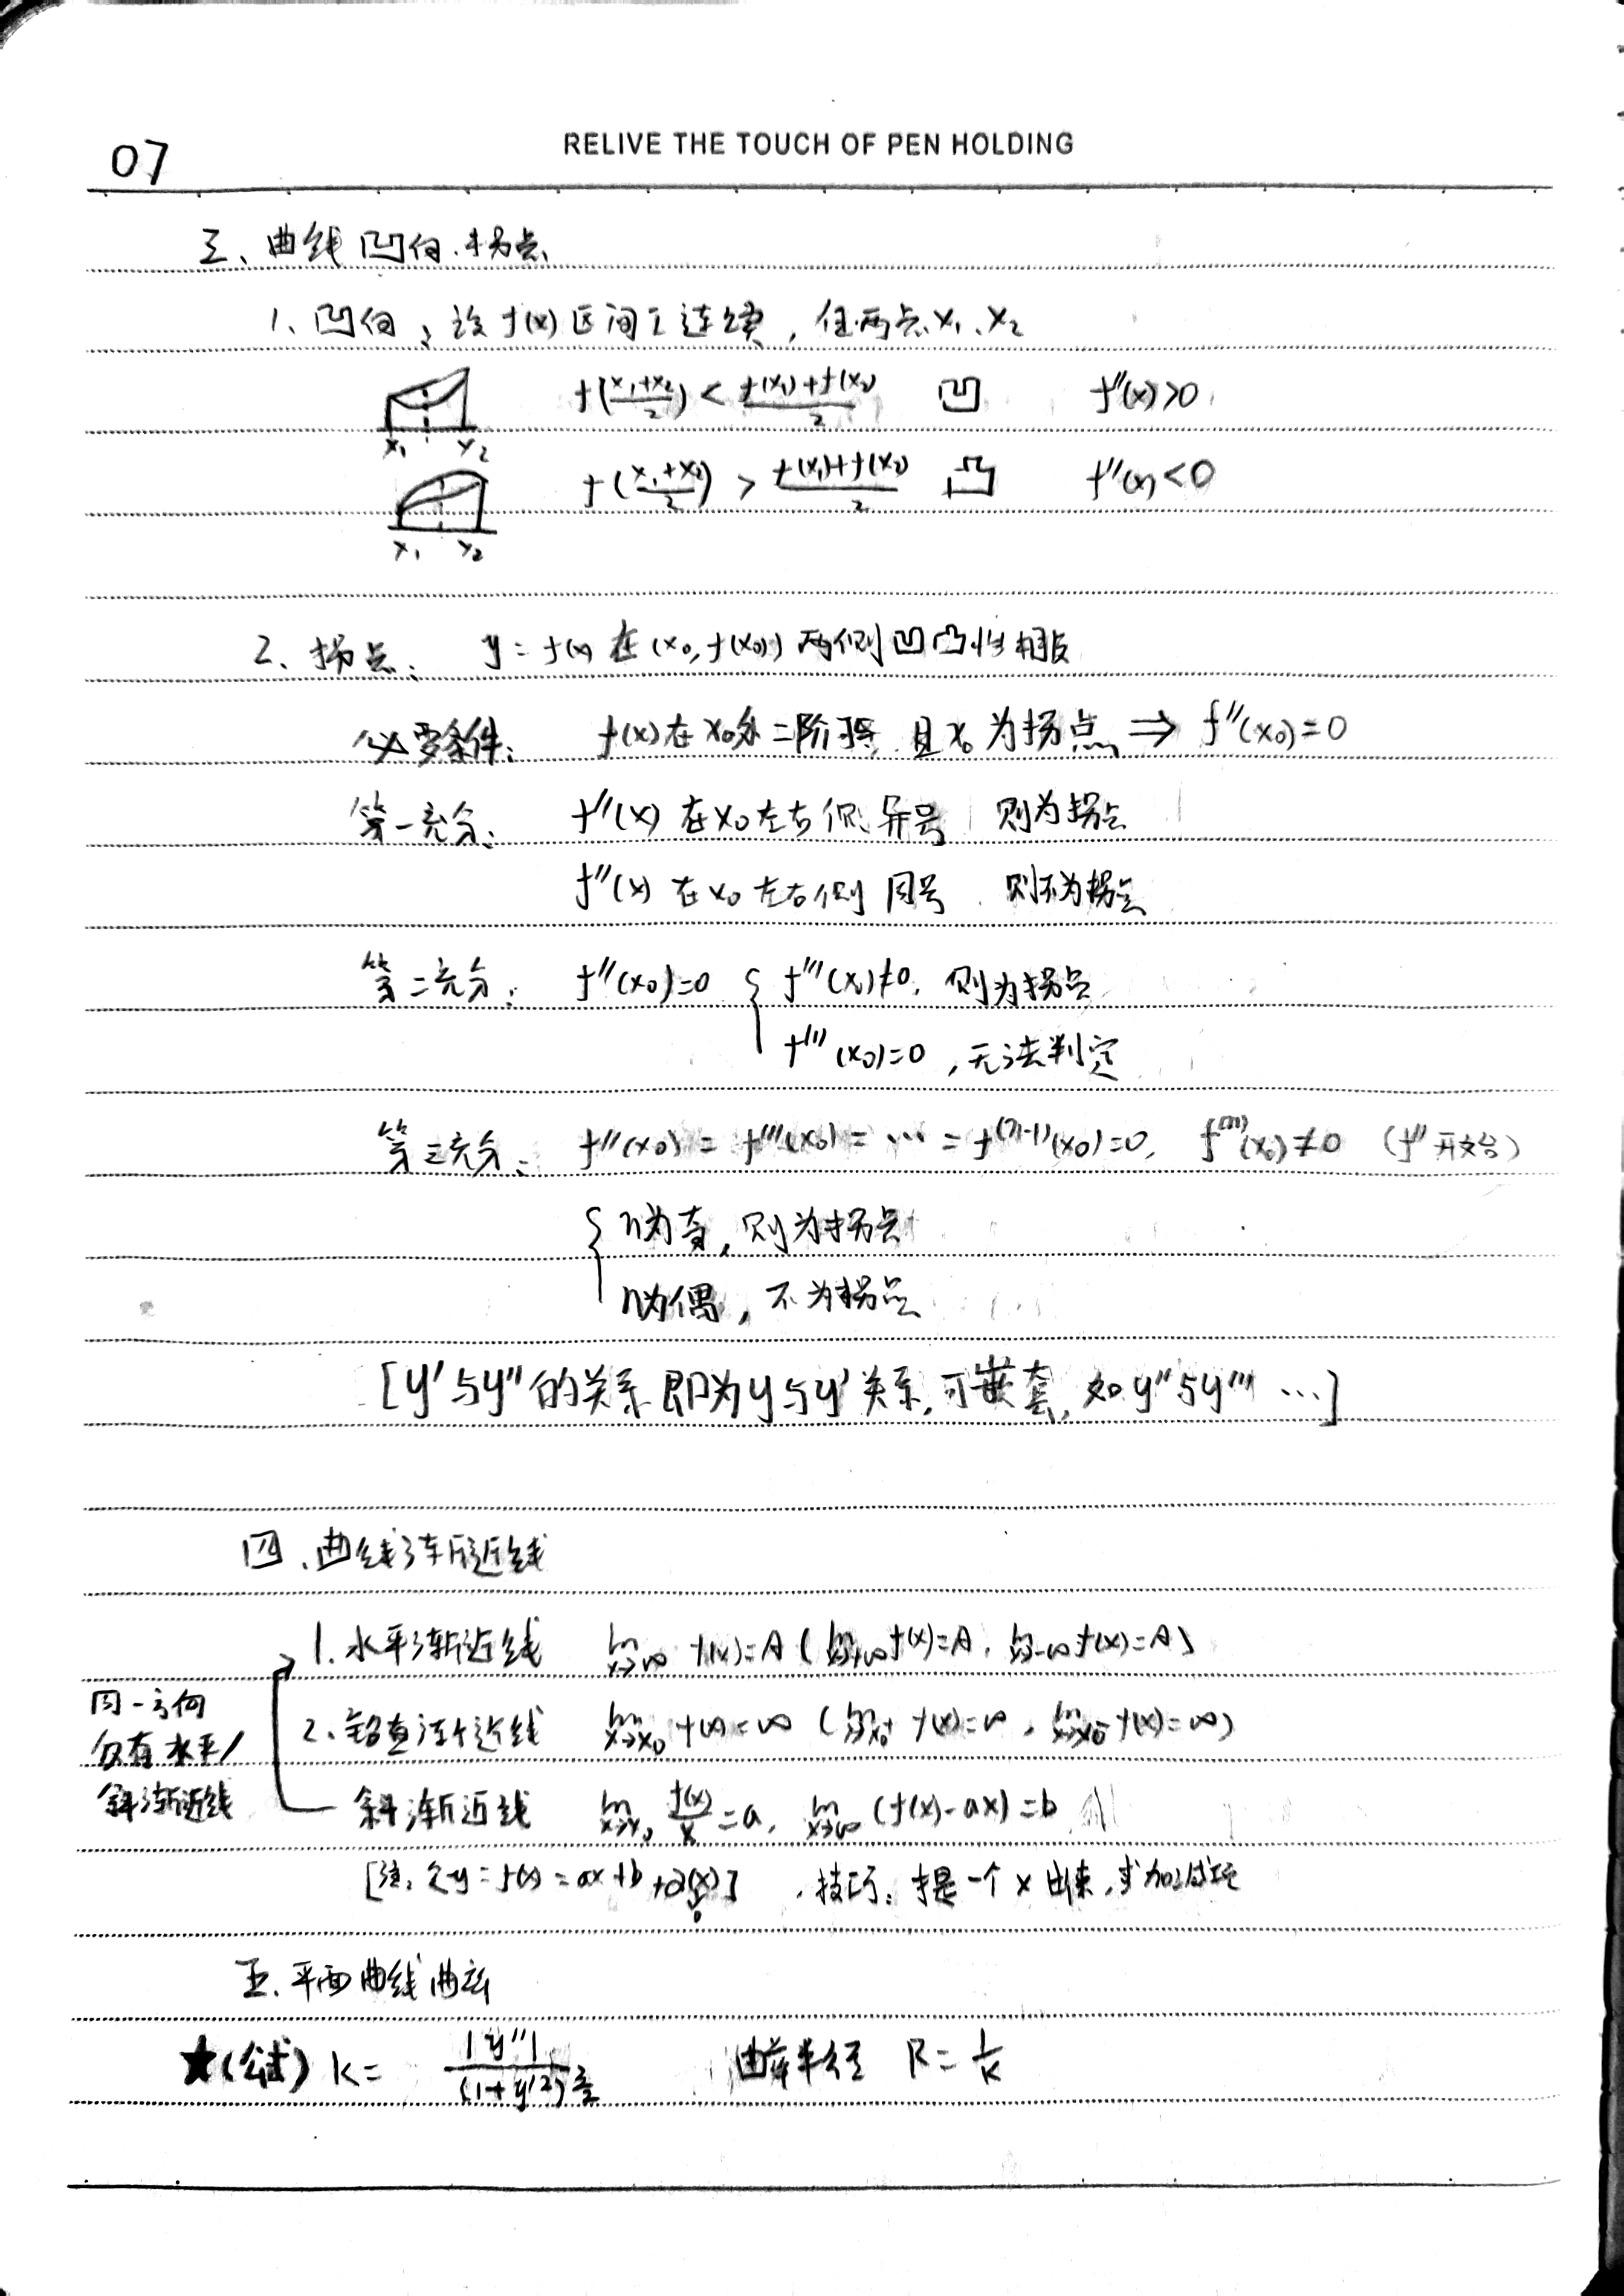 RELIVE THE TOUCH OF PEN HOLDING
07
三、曲线凹向、拐点
1、凹向:设 f(x) 区间 I 连续,任两点 x₁、x₂
f((x₁+x₂)/2) < (f(x₁)+f(x₂))/2 凹 f''(x)>0
x₁ x₂
f((x₁+x₂)/2) > (f(x₁)+f(x₂))/2 凸 f''(x)<0
x₁ x₂
2、拐点: y=f(x) 在 (x₀,f(x₀)) 两侧凹凸性相反
必要条件: f(x) 在 x₀处二阶可导 且 x₀ 为拐点 ⇒ f''(x₀)=0
第一充分: f''(x) 在 x₀ 左右侧异号 则为拐点
f''(x) 在 x₀ 左右侧 同号 则不为拐点
第二充分: f''(x₀)=0 { f'''(x₀)≠0, 则为拐点
f'''(x₀)=0 ,无法判定
第三充分: f''(x₀) = f'''(x₀) = … = f⁽ⁿ⁻¹⁾(x₀)=0, f⁽ⁿ⁾(x₀)≠0 (f''开始)
{ n为奇,则为拐点
n为偶,不为拐点
[y'与y''的关系即为y与y'关系,可嵌套,如y''与y''' …]
四、曲线渐近线
1. 水平渐近线 lim x→∞ f(x)=A ( lim x→+∞ f(x)=A, lim x→-∞ f(x)=A )
2. 铅直渐近线 lim x→x₀ f(x)=∞ ( lim x→x₀⁺ f(x)=∞, lim x→x₀⁻ f(x)=∞ )
同一方向
仅有水平/
斜渐近线
斜渐近线 lim x→x₀ f(x)/x =a, lim x→∞ (f(x)-ax)=b
[注: 令y=f(x)=ax+b+α(x)] 技巧: 提一个 x 出来,或加减项
0
五. 平面曲线曲率
★(公式) k= |y''|/(1+y'²)^(3/2) 曲率半径 R=1/k